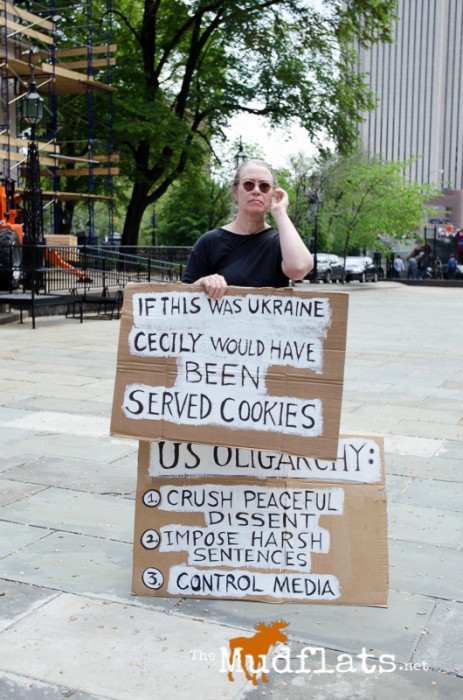 IF THIS WAS UKRAINE
CECILY WOULD HAVE
BEEN
SERVED COOKIES
US OLIGARCHY:
1 CRUSH PEACEFUL
DISSENT
2 IMPOSE HARSH
SENTENCES
3. CONTROL MEDIA
The Mudflats.net